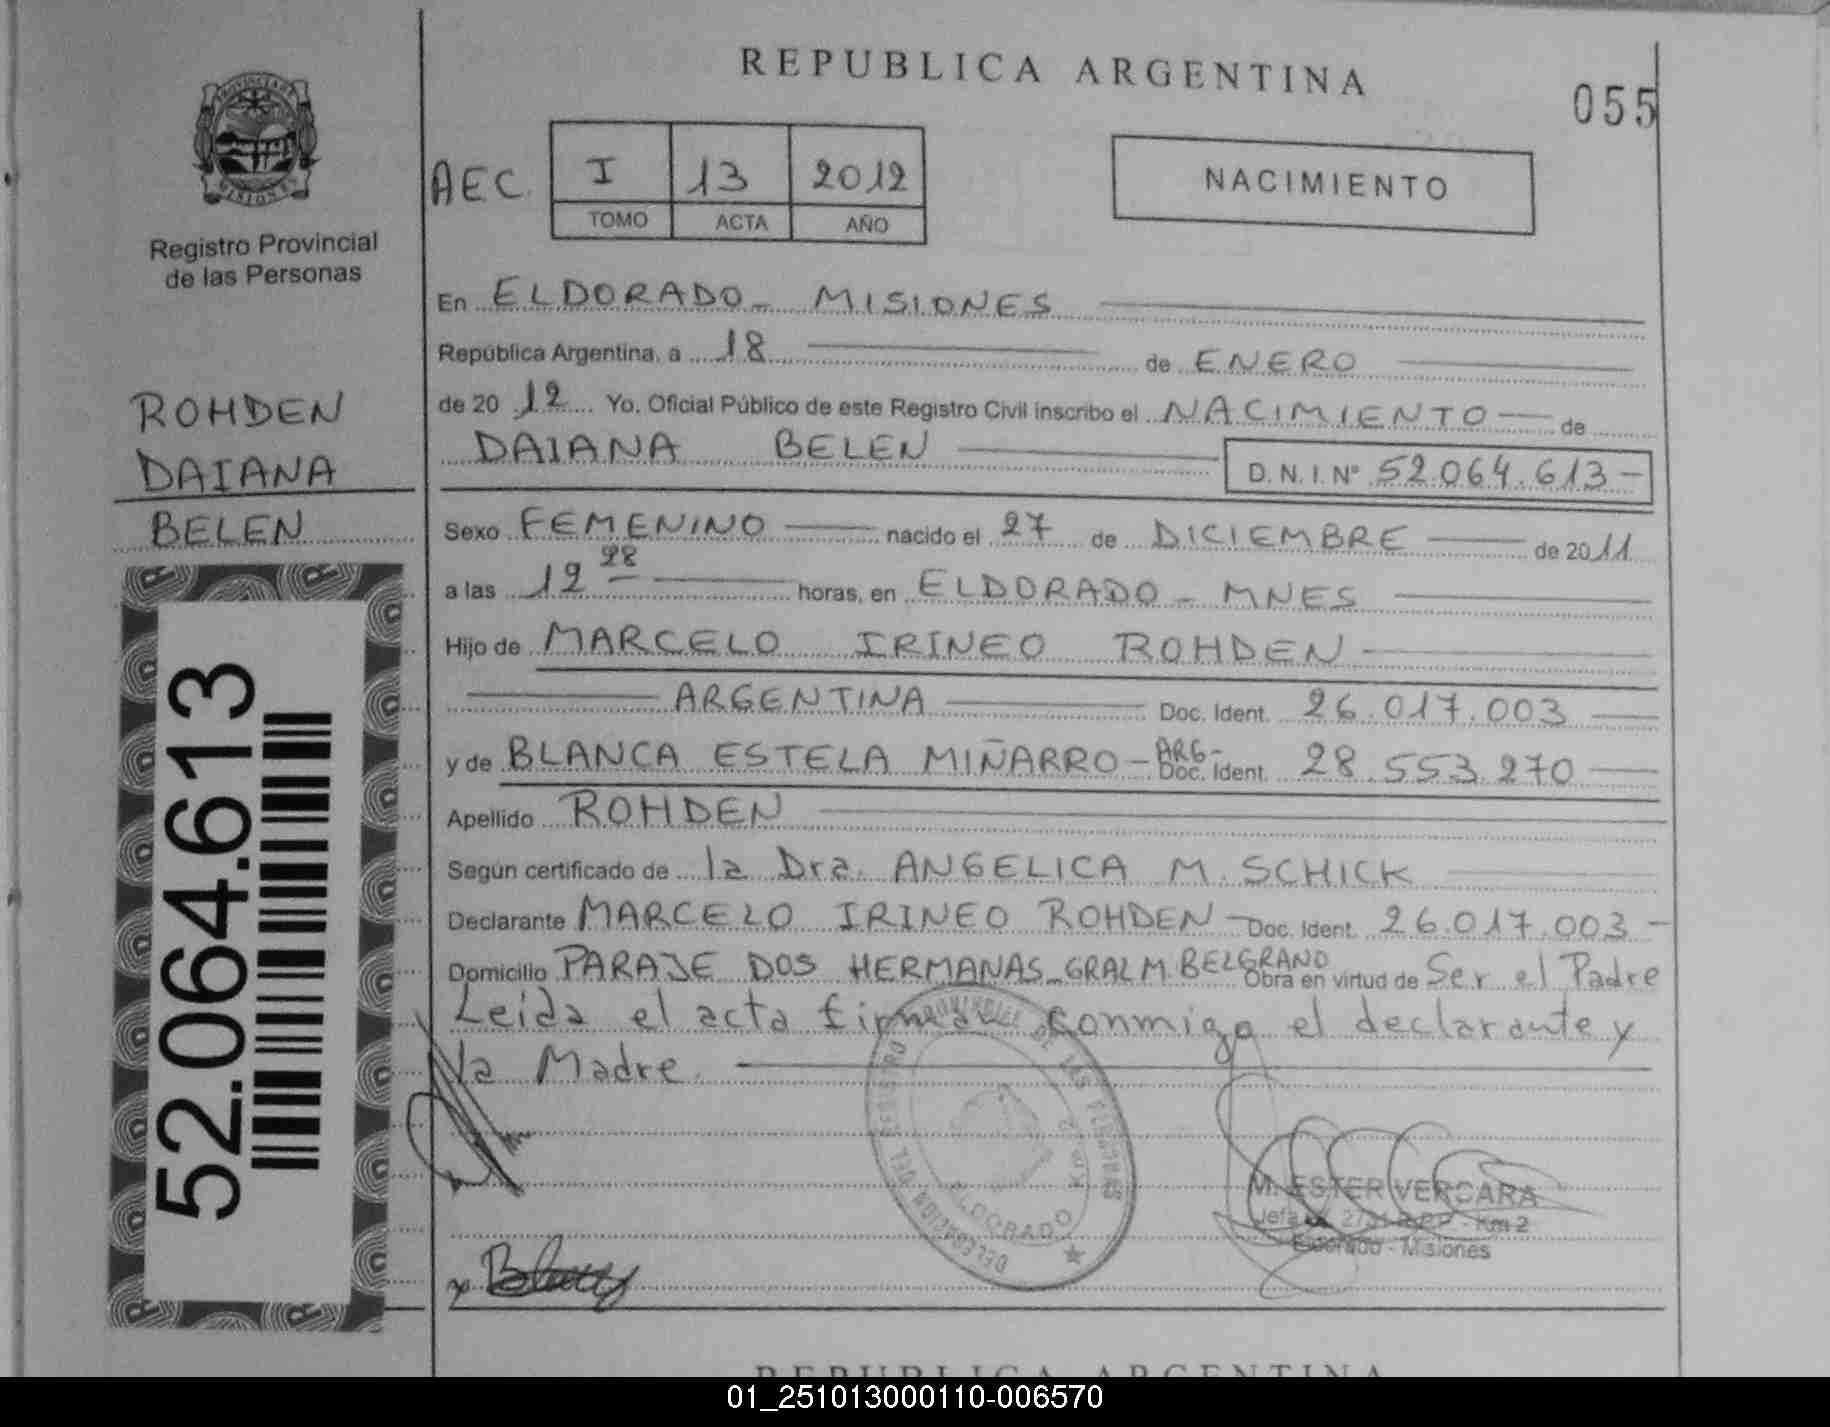 REPUBLICA ARGENTINA
055
PROVINCIA DE
MISIONES
Registro Provincial
de las Personas
AEC
I 13 2012
TOMO ACTA AÑO
NACIMIENTO
ROHDEN
DAIANA
BELEN
52.064.613
En ELDORADO - MISIONES
República Argentina, a 18 de ENERO
de 20 12 Yo, Oficial Público de este Registro Civil inscribo el NACIMIENTO de
DAIANA BELEN D.N.I. Nº 52.064.613-
Sexo FEMENINO nacido el 27 de DICIEMBRE de 2011
a las 12 28 horas, en ELDORADO - MNES
Hijo de MARCELO IRINEO ROHDEN
ARGENTINA Doc. Ident. 26.017.003
y de BLANCA ESTELA MIÑARRO - ARG- Doc. Ident. 28.553.270
Apellido ROHDEN
Según certificado de la Dra. ANGELICA M. SCHICK
Declarante MARCELO IRINEO ROHDEN - Doc. Ident. 26.017.003 -
Domicilio PARAJE DOS HERMANAS - GRAL M. BELGRANO Obra en virtud de Ser el Padre
Leida el acta firman conmigo el declarante y
la Madre.
DELEGACION DEL REGISTRO PROVINCIAL DE LAS PERSONAS
ELDORADO
M. ESTER VERGARA
Jefa Of. 2731 R.P.P. - Km 2
Eldorado - Misiones
x Blanca
REPUBLICA ARGENTINA
01_251013000110-006570